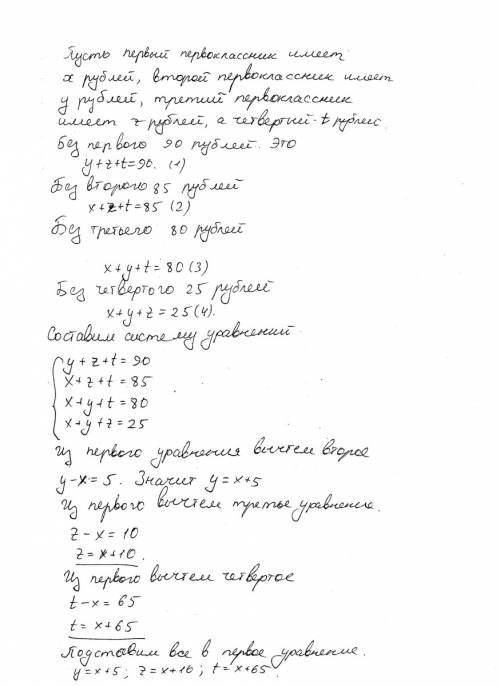 Пусть первый первоклассник имеет
x рублей, второй первоклассник имеет
y рублей, третий первоклассник
имеет z рублей, а четвертый - t рублей.
Без первого 90 рублей. Это
y+z+t=90. (1)
Без второго 85 рублей
x+z+t=85 (2)
Без третьего 80 рублей
x+y+t=80 (3)
Без четвертого 25 рублей
x+y+z=25 (4).
Составим систему уравнений
y+z+t=90
x+z+t=85
x+y+t=80
x+y+z=25
Из первого уравнения вычтем второе
y-x=5. Значит y=x+5
Из первого вычтем третье уравнение.
z-x=10
z=x+10.
Из первого вычтем четвертое
t-x=65
t=x+65
Подставим все в первое уравнение.
y=x+5; z=x+10; t=x+65.